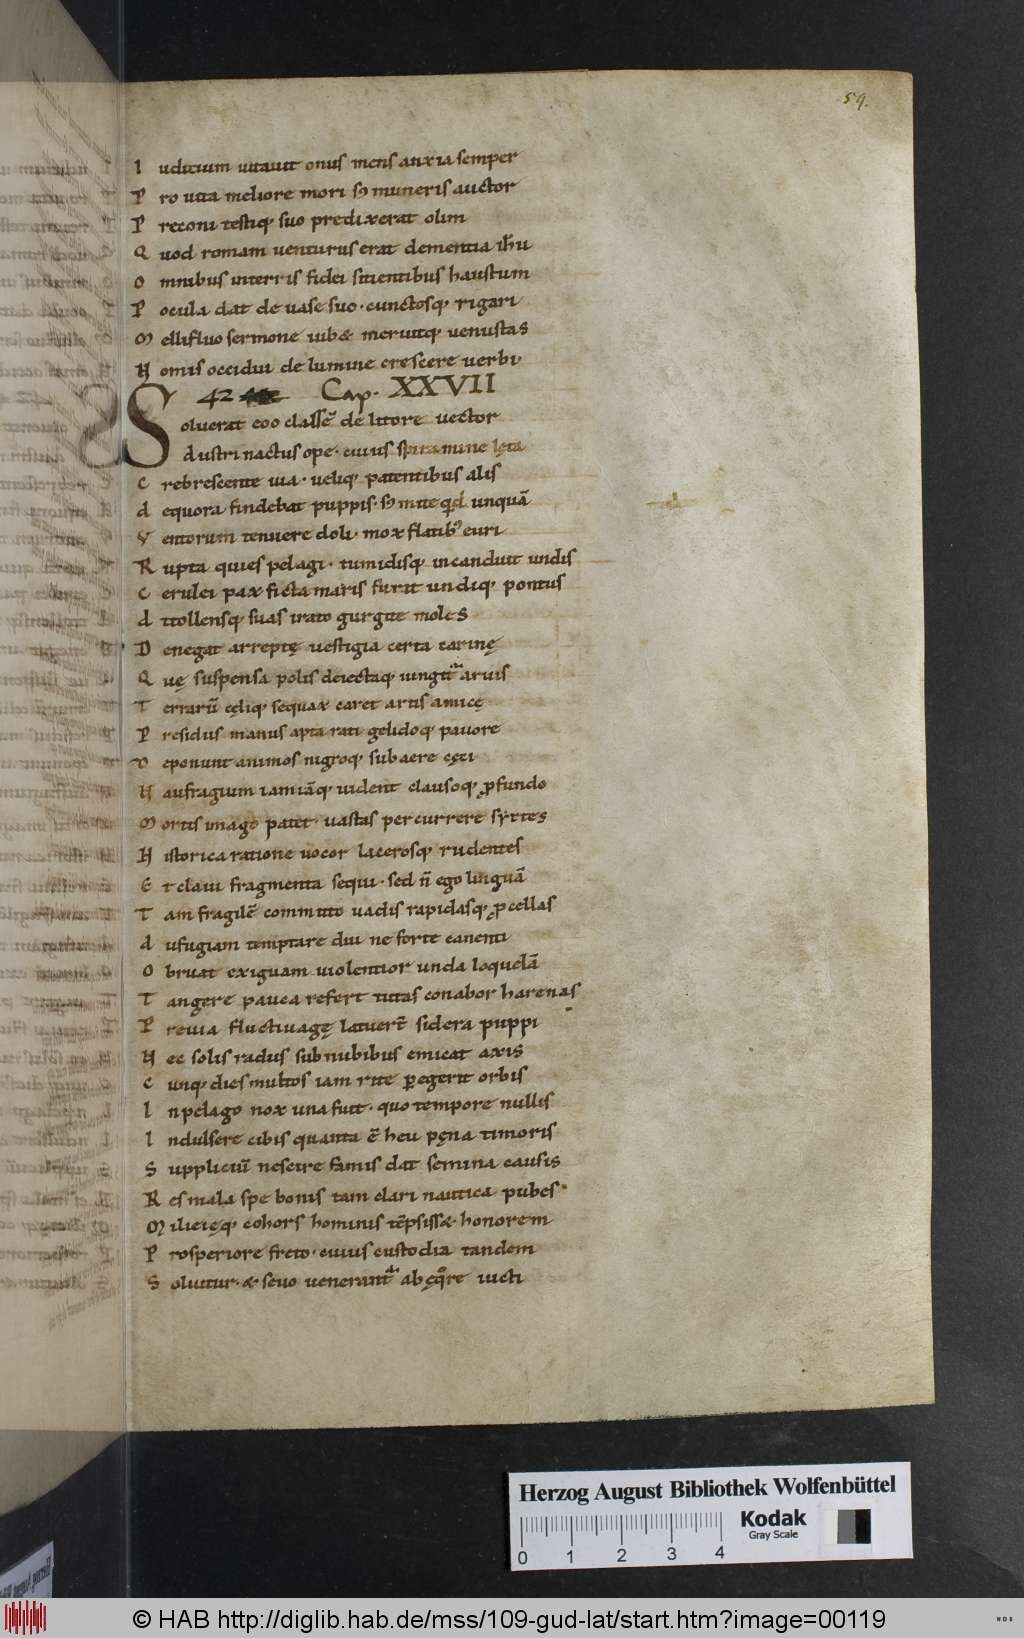 59.
I udicium uitauit onus mens anxia semper
P ro uita meliore mori sꝫ muneris auctor
P reconi testiqꝫ suo predixerat olim
Q uod romam uenturus erat clementia ih̄u
O mnibus interris fidei sitientibus haustum
P ocula dat de uase suo · cunctosqꝫ rigari
M ellifluo sermone iub& meruitqꝫ uenustas
N omis occidui de lumine crescere uerbi
42 Cap. XXVII
S oluerat eoo classē de litore uector
d ustri nactus ope · cuius spiramine lęta
C rebrescente uia · ueliqꝫ patentibus alis
d equora findebat puppis · sꝫ mite qd unquā
V entorum tenuere doli · mox flatibꝰ euri
R upta quies pelagi · tumidisqꝫ incanduit undis
C erulei pax ficta maris furit undiqꝫ pontus
d ttollensqꝫ suas irato gurgite moles
D enegat arreptę uestigia certa carinę
Q uę suspensa polis deiectaqꝫ iungit᷑ aruis
T errarū cęliqꝫ sequax caret artis amicę
P residus manus apta rati gelidoqꝫ pauore
D eponunt animos nigroqꝫ sub aere cęci
N aufragium iamiāqꝫ uident clausoqꝫ ꝓfundo
M ortis imago patet · uastas percurrere syrtes
H istorica ratione uocor lacerosqꝫ rudentes
E t claui fragmenta sequi · sed n̄ ego linguā
T am fragilē committo uadis rapidasqꝫ ꝓcellas
d ufugiam temptare diu ne forte canenti
O bruat exiguam uiolentior unda loquelā
T angere pauca refert tutas conabor harenas
P reuia fluctiuagę latuerē sidera puppi
N ec solis radius sub nubibus emicat axis
C unqꝫ dies multos iam rite ꝑegerit orbis
I n pelago nox una fuit · quo tempore nullis
I ndulsere cibis quanta ē heu pęna timoris
S uppliciū nescire famis dat semina causis
R es mala spe bonis tam clari nautica pubes
M ilicięqꝫ cohors hominis tēpsiss& honorem
P rosperiore freto · cuius custodia tandem
S oluitur · & seuo uenerant᷑ ab ęqͦre uicti
Herzog August Bibliothek Wolfenbüttel
Kodak
Gray Scale
0 1 2 3 4
© HAB http://diglib.hab.de/mss/109-gud-lat/start.htm?image=00119